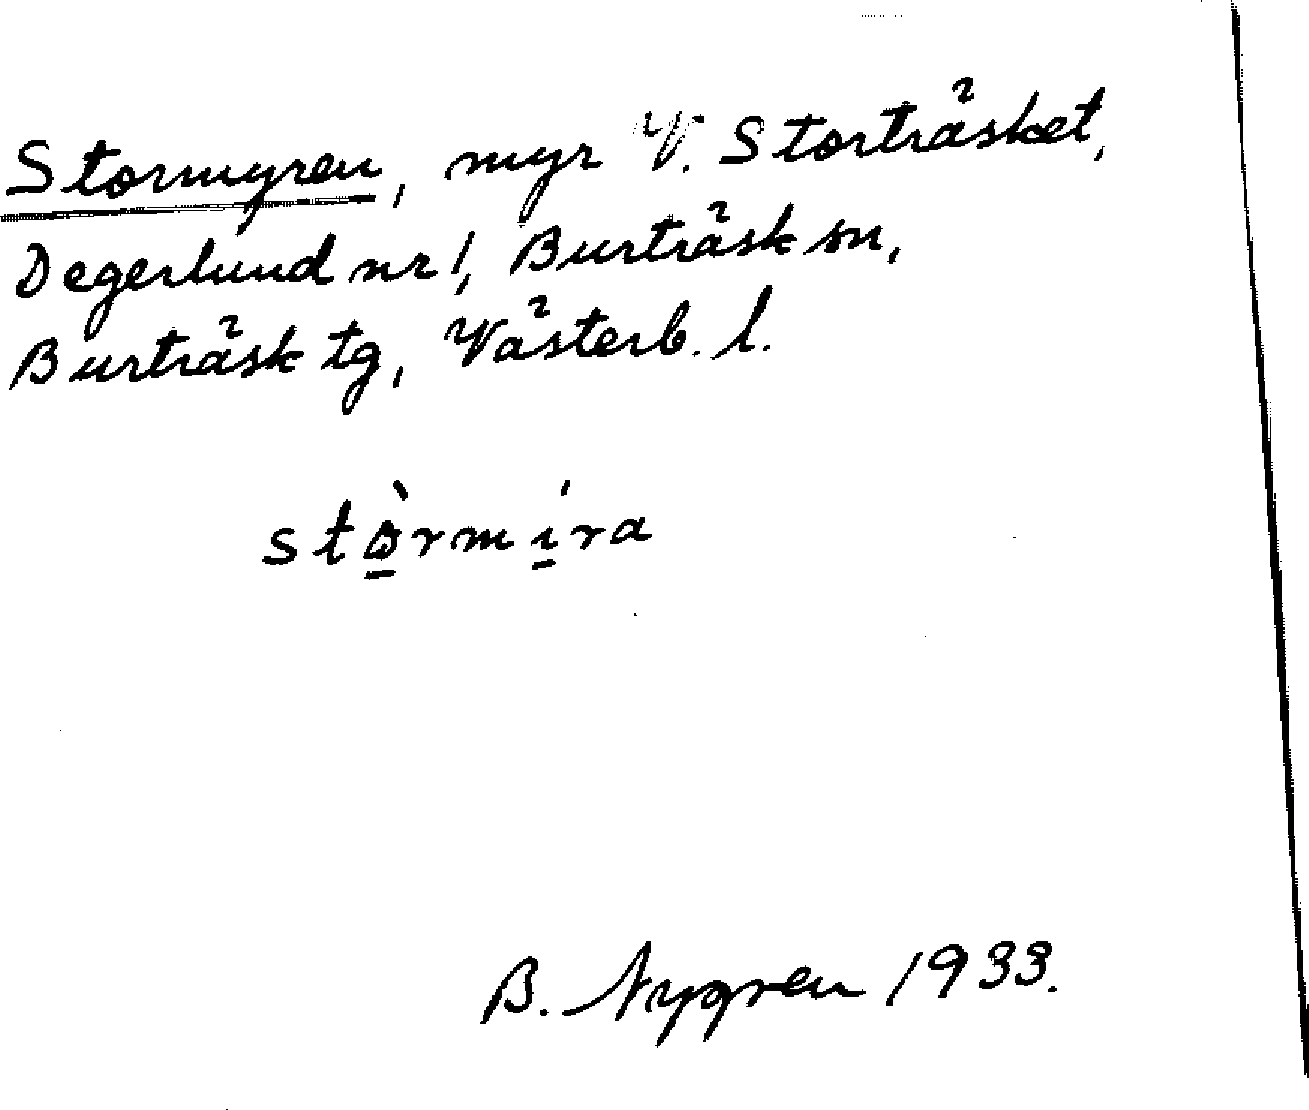 Stormyren, myr V. Storträsket,
Degerlund nr 1, Burträsk sn,
Burträsk tg, Västerb. l.
stò̱rmí̱ra
B. Nygren 1933.